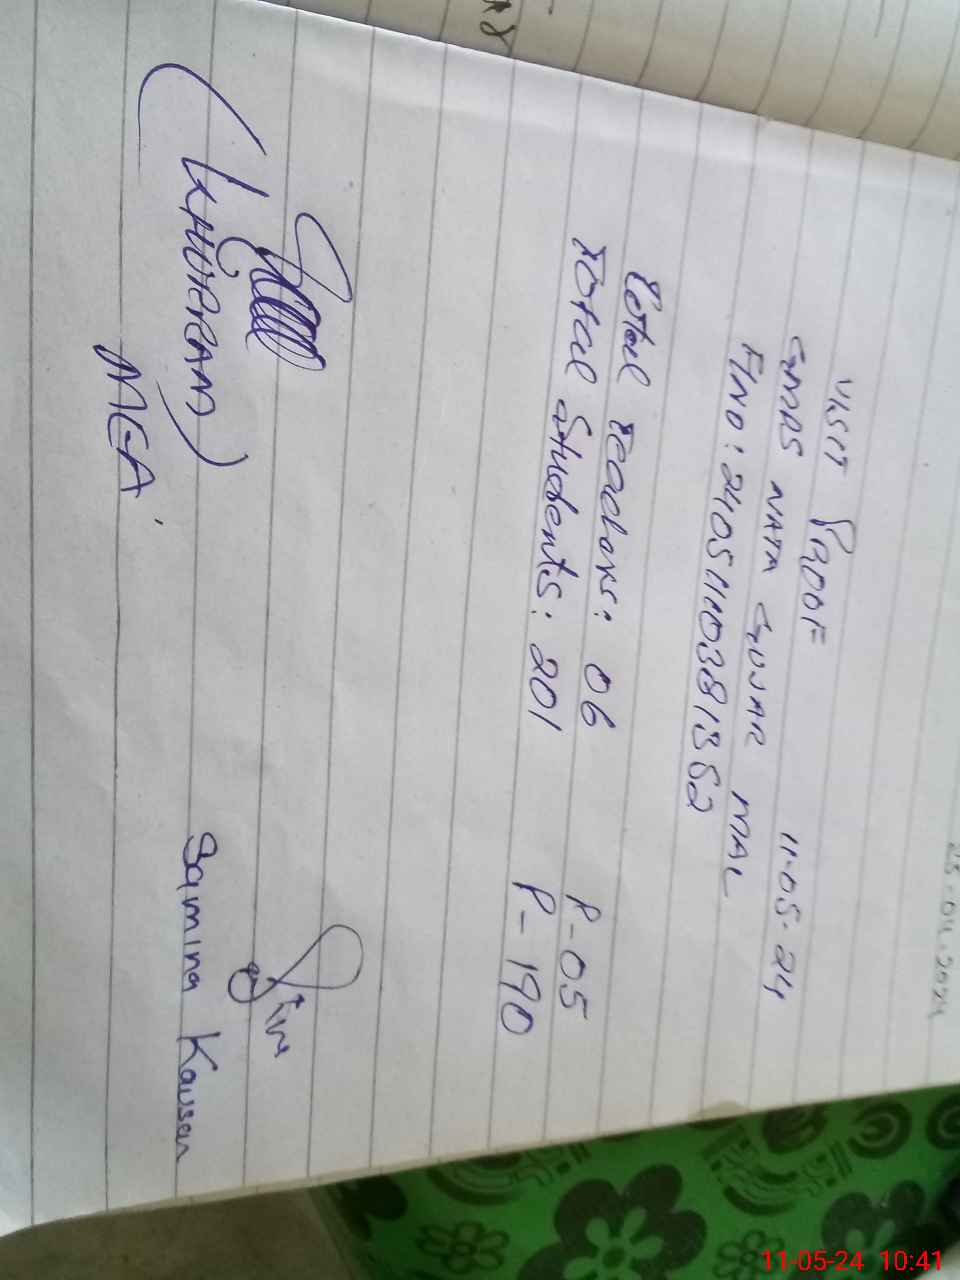 VISIT PROOF
11-05-24
GMPS NATA GUJAR MAL
FINO: 24051110381352
Total teachers: 06 P-05
Total Students: 201 P-190
(KHURRAM)
MEA
Samina Kausar
25-04-2024
11-05-24 10:41